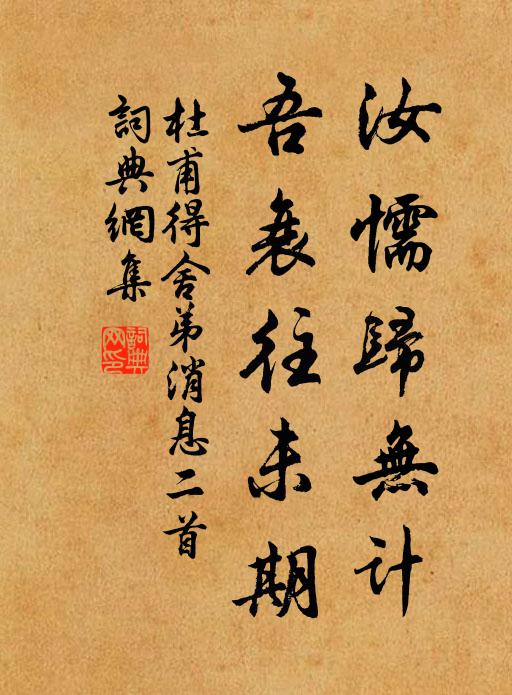 汝懦歸無計
吾衰往未期
杜甫得舍弟消息二首
詞典網集
詞典網印